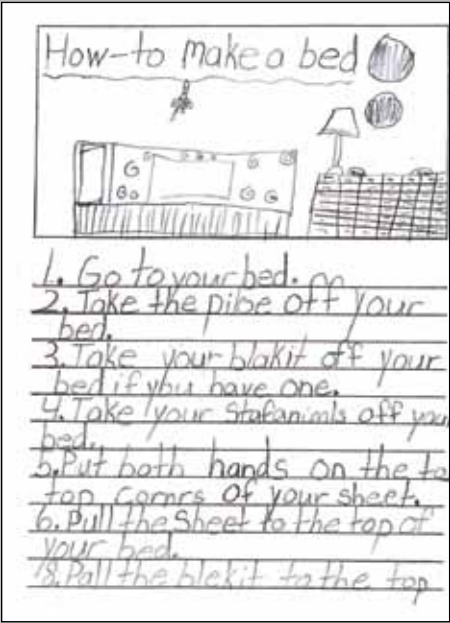 How-to make a bed
1. Go to your bed.
2. Take the piloe off your
bed.
3. Take your blakit off your
bed if you have one.
4. Take your Stafanimls off your
bed.
5. Put both hands on the to
top cornrs of your sheet.
6. Pull the sheet to the top of
your bed.
8. Pall the blekit to the top